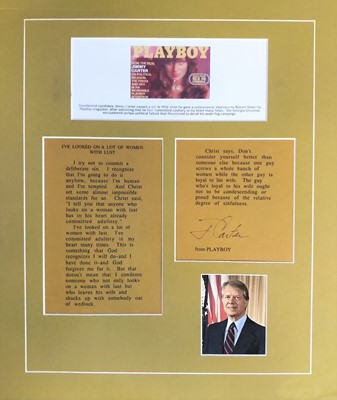 PLAYBOY
JIMMY
CARTER
I'VE LOOKED ON A LOT OF WOMEN
WITH LUST
I try not to commit a
deliberate sin. I recognize
that I'm going to do it
anyhow, because I'm human
and I'm tempted. And Christ
set some almost impossible
standards for us. Christ said,
"I tell you that anyone who
looks on a woman with lust
has in his heart already
committed adultery."
I've looked on a lot of
women with lust. I've
committed adultery in my
heart many times. This is
something that God
recognizes I will do-and I
have done it-and God
forgives me for it. But that
doesn't mean that I condemn
someone who not only looks
on a woman with lust but
who leaves his wife and
shacks up with somebody out
of wedlock.
Christ says, Don't
consider yourself better than
someone else because one guy
screws a whole bunch of
women while the other guy is
loyal to his wife. The guy
who's loyal to his wife ought
not to be condescending or
proud because of the relative
degree of sinfulness.
J Carter
from PLAYBOY